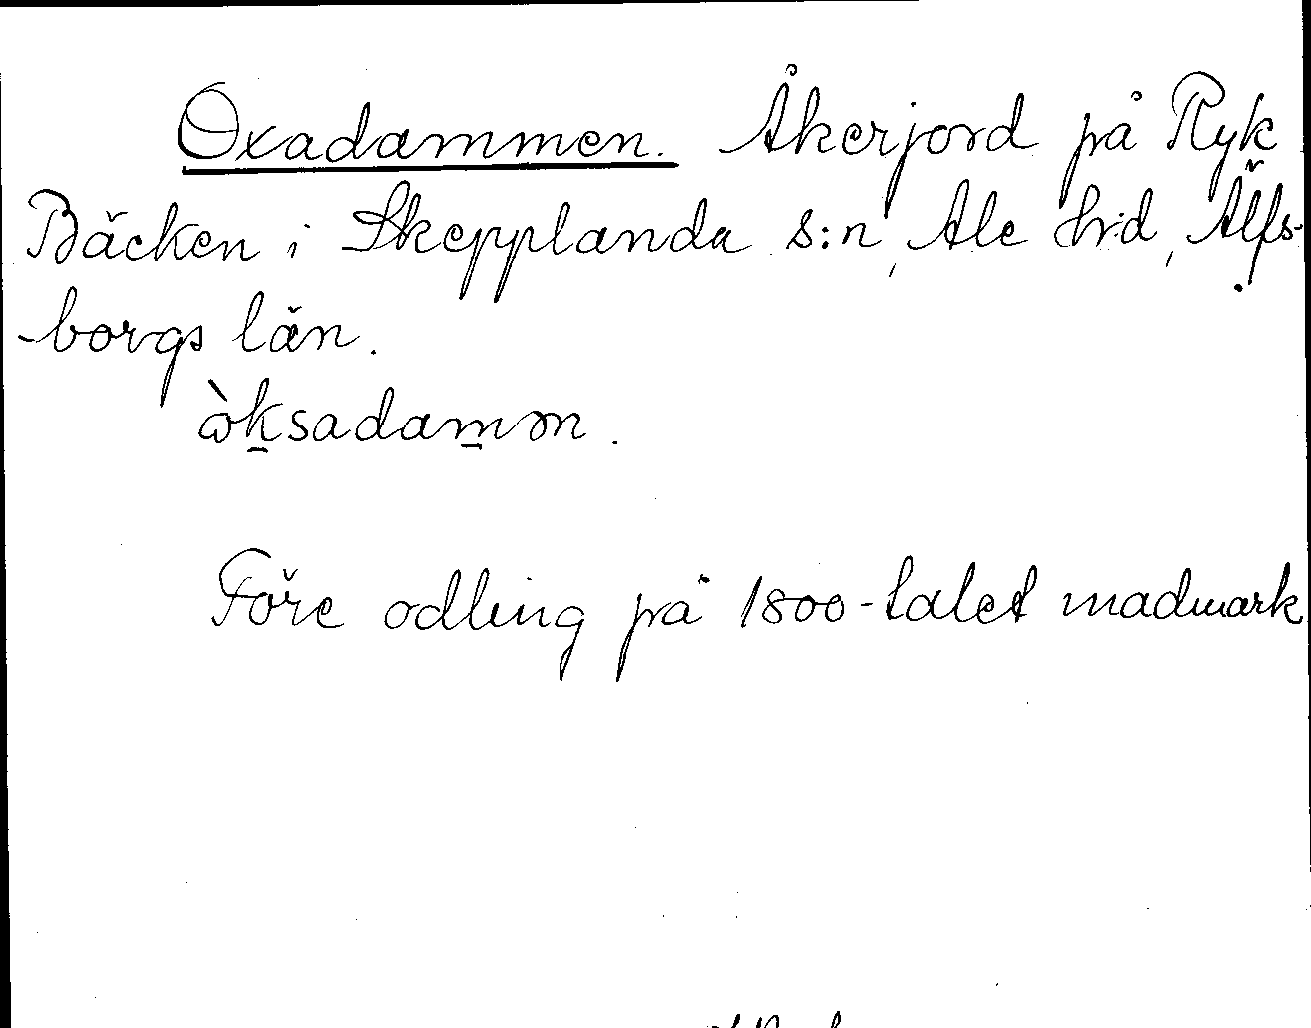 Oxadammen. Åkerjord på Ryk
Bäcken i Skepplanda s:n, Ale hrd, Älfs-
-borgs län.
òksadamən.
Före odling på 1800-talet madmark